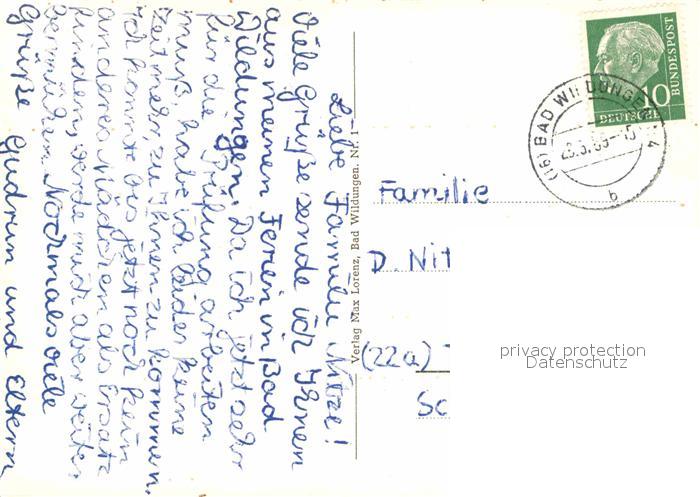 Liebe Familie Nitze!
Viele Grüße sende ich Ihnen
aus meinen Ferien in Bad
Wildungen. Da ich jetzt sehr
für die Prüfung arbeiten
muß, habe ich leider keine
Zeit mehr, zu Ihnen zu kommen.
Ich konnte bis jetzt noch kein
anderes Mädchen als Ersatz
finden, werde mich aber weiter
bemühen. Nochmals viele
Grüße Gudrun und Eltern
Verlag Max Lorenz, Bad Wildungen. Nr. 1
Familie
D. Nit
(22a)
Sc
(16) BAD WILDUNGEN 4
b
10
DEUTSCHE
BUNDESPOST
privacy protection
Datenschutz